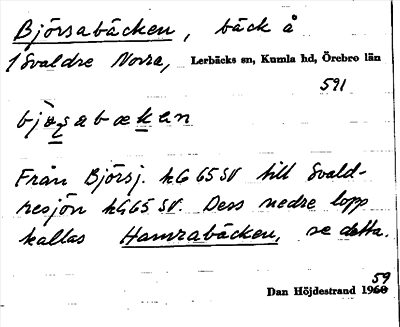 Björsabäcken, bäck å
1 Svaldre Norra, Lerbäcks sn, Kumla hd, Örebro län
591
Från Björsj. hG 65 SV till Svald-
resjön hG 65 SV. Dess nedre lopp
kallas Hamrabäcken, se detta.
Dan Höjdestrand 1959